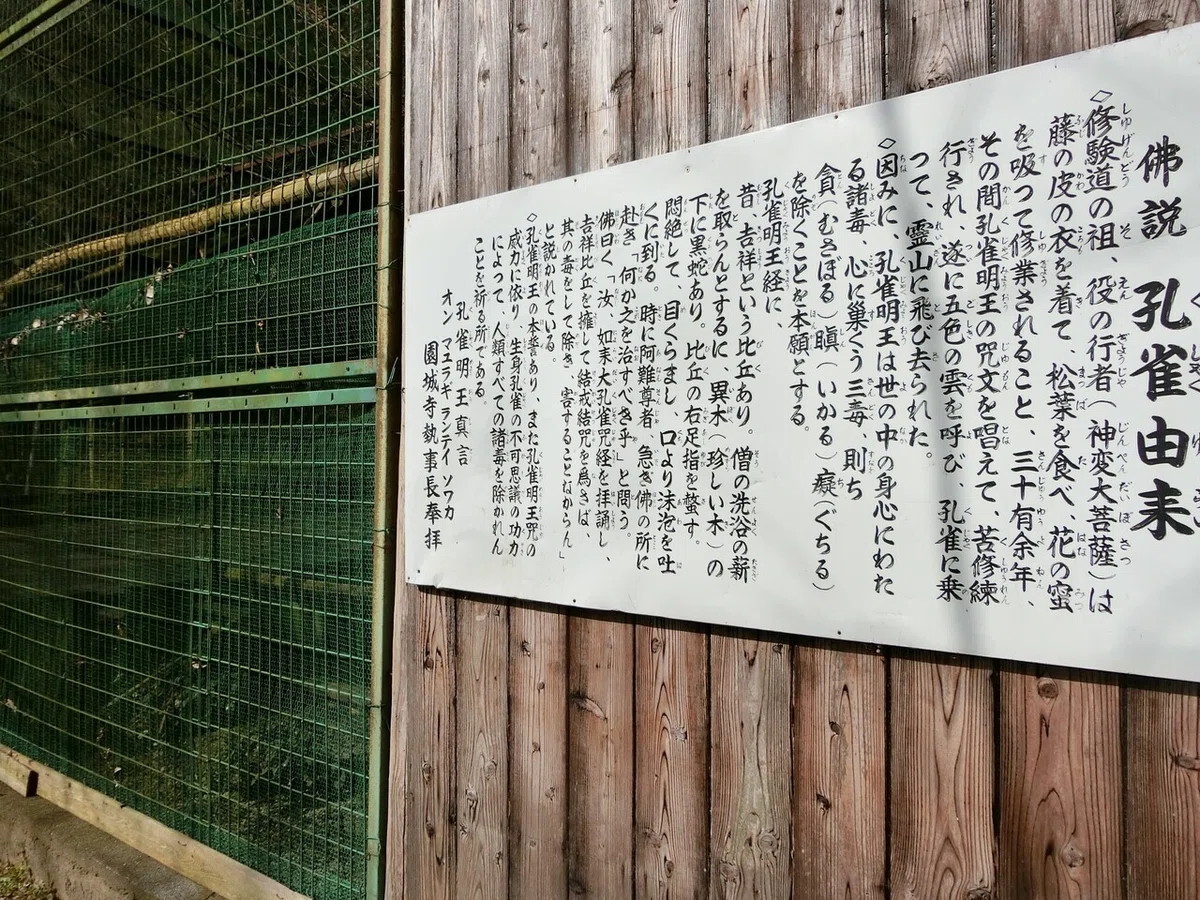 佛説 孔雀由来
◇修験道の祖、役の行者(神変大菩薩)は
藤の皮の衣を着て、松葉を食べ、花の蜜
を吸って修業されること、三十有余年、
その間孔雀明王の咒文を唱えて、苦修練
行され、遂に五色の雲を呼び、孔雀に乗
って、霊山に飛び去られた。
◇因みに、孔雀明王は世の中の身心にわた
る諸毒、心に巣くう三毒、則ち
貪(むさぼる)瞋(いかる)癡(ぐちる)
を除くことを本願とする。
孔雀明王経に、
昔、吉祥という比丘あり。僧の洗浴の薪
を取らんとするに、異木(珍しい木)の
下に黒蛇あり。比丘の右足指を螫す。
悶絶して、目くらまし、口より沫泡を吐
くに到る。時に阿難尊者、急ぎ佛の所に
赴き、何か之を治すべき乎」と問う。
佛曰く「汝、如来大孔雀咒経を拝誦し、
吉祥比丘を擁して、結戒結咒を為さば、
其の毒をして除き、害することなからん」
と説かれている。
◇孔雀明王の本誓あり、また孔雀明王咒の
威力に依り、生身孔雀の不可思議の功力
によって、人類すべての諸毒を除かれん
ことを祈る所である。
孔雀明王真言
オン マユラギ ランテイ ソワカ
園城寺執事長奉拝